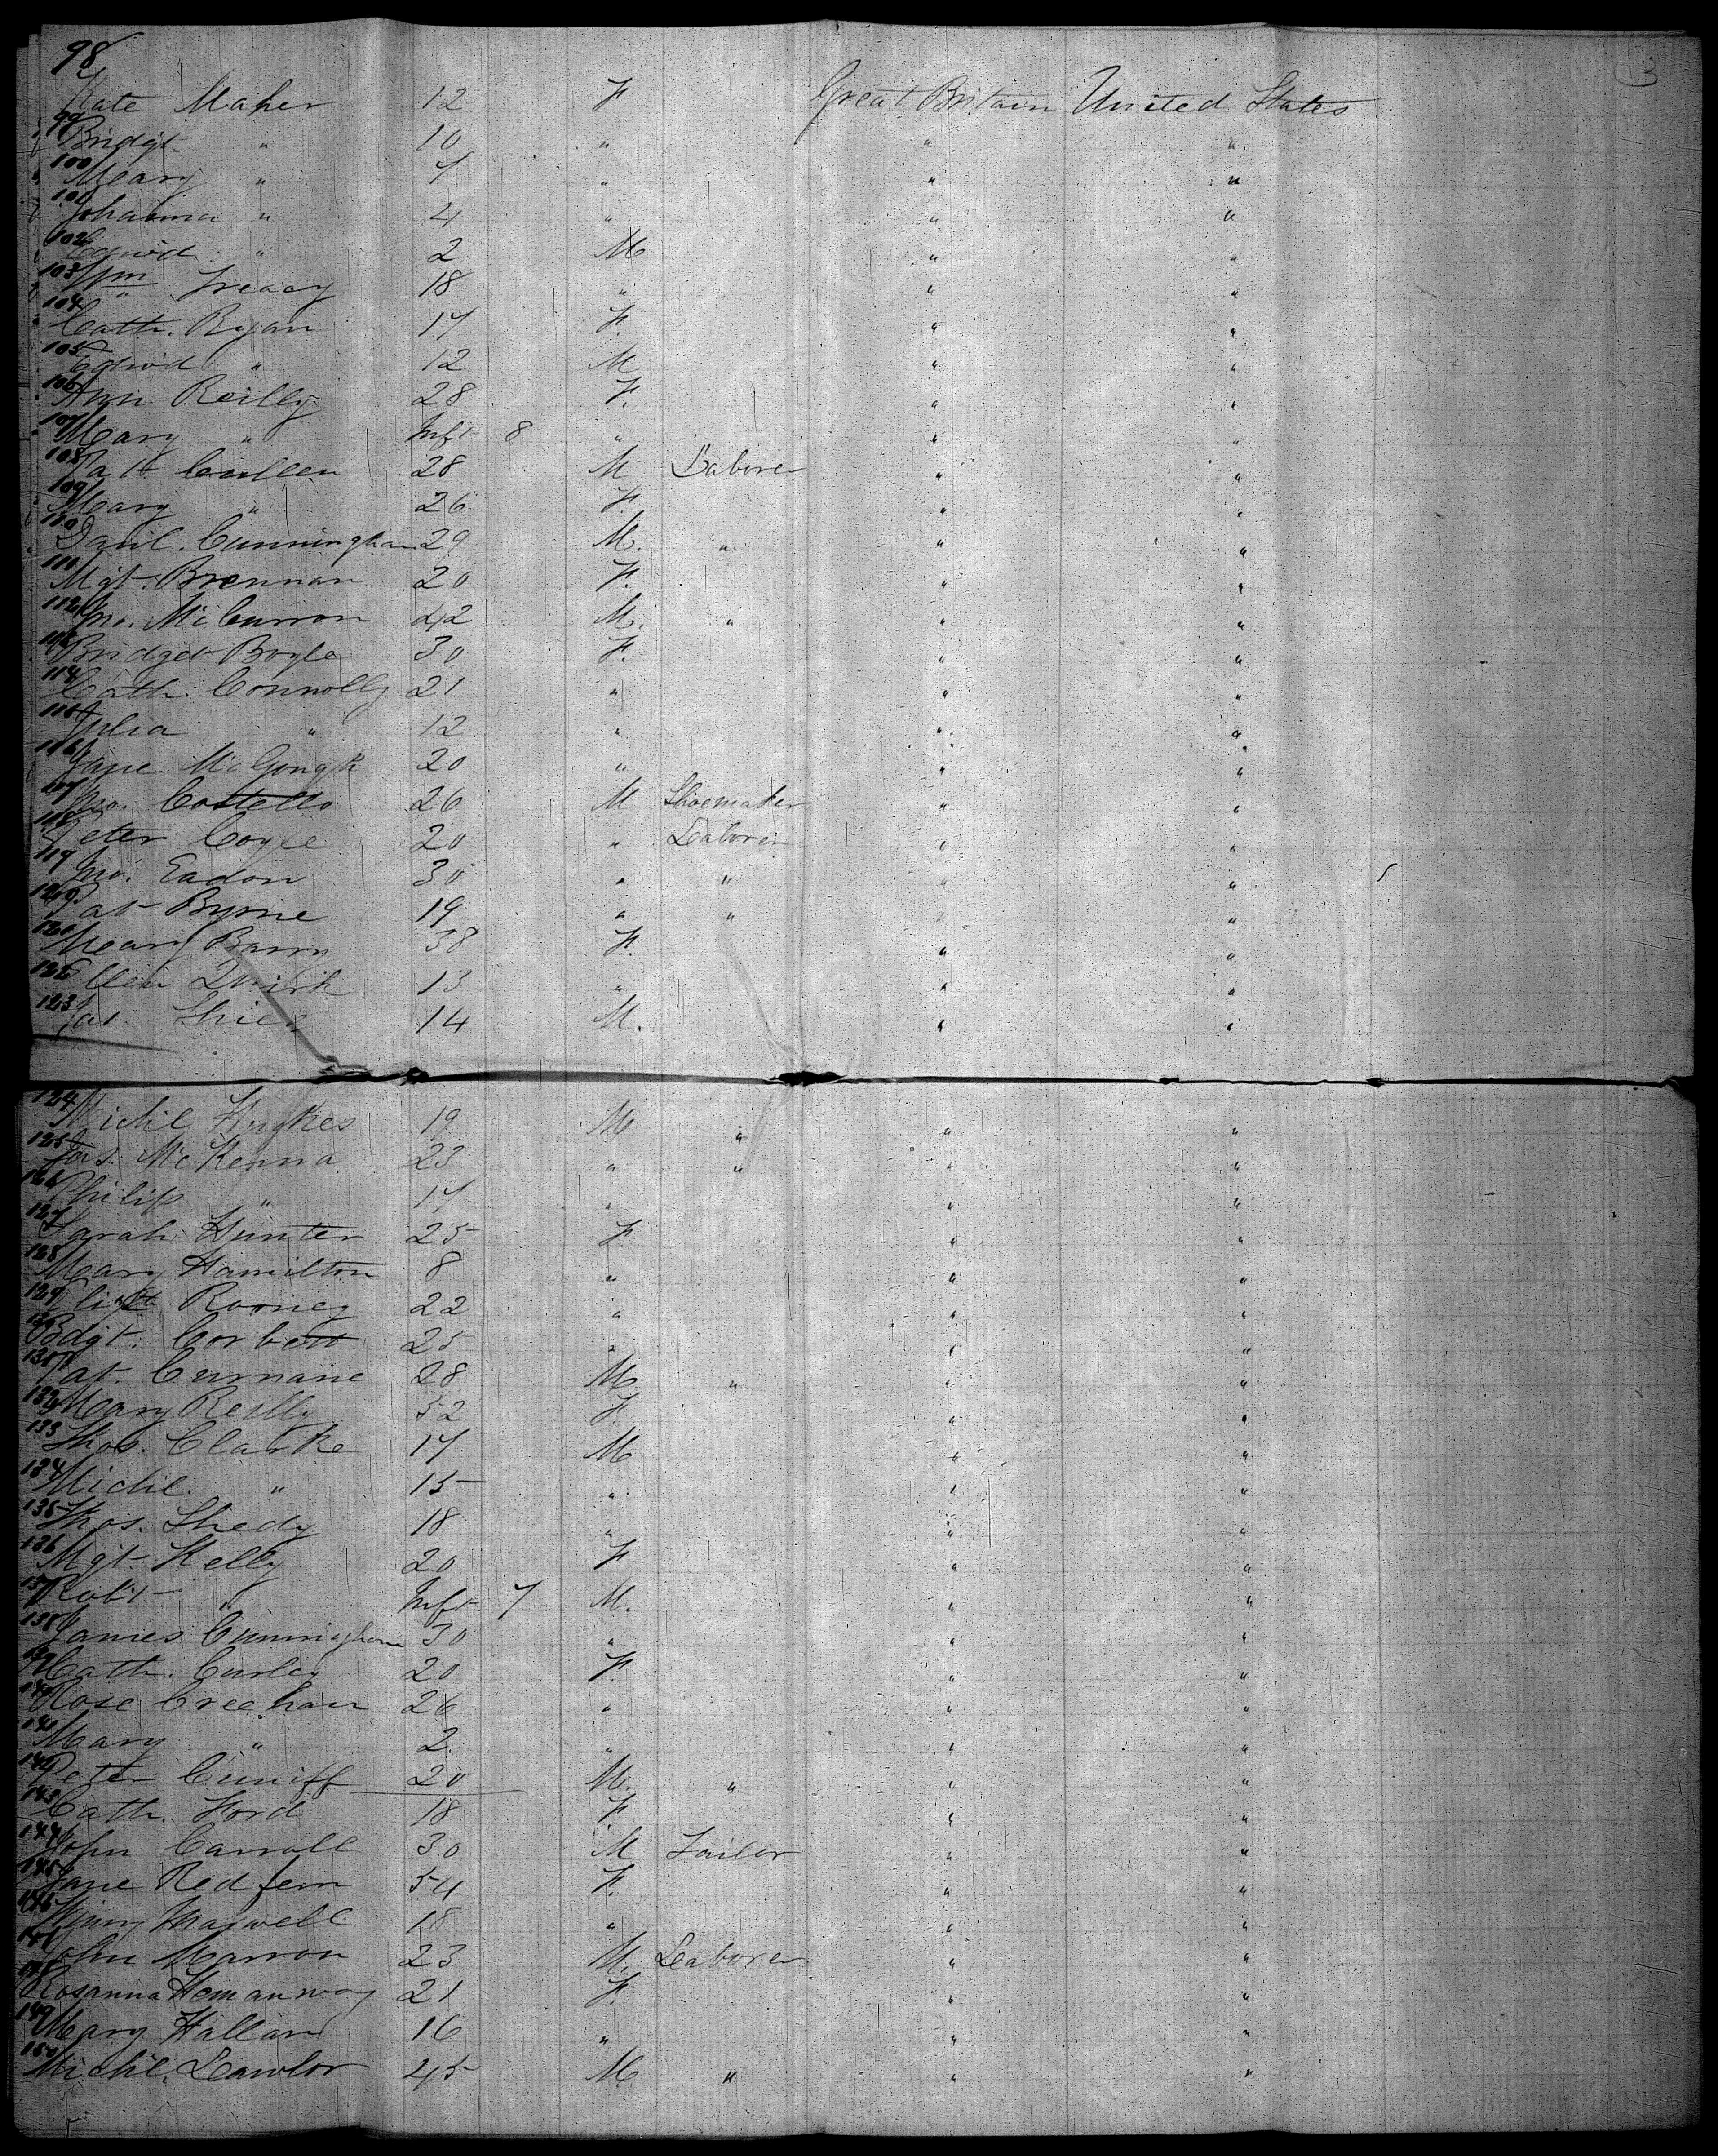 98 3
Kate Maher 12 F Great Britain United States
99 Bridgt " 10 " " "
100 Mary " 7 " " "
101 Johanna " 4 " " "
102 Edwd " 2 M " "
103 Wm Treacy 18 " " "
104 Cath. Ryan 17 F. " "
105 Edwd " 12 M " "
106 Ann Reilly 28 F. " "
107 Mary " Inft 8 " " "
108 Patk Cullen 28 M Laborer " "
109 Mary " 26 F. " "
110 Danl. Cunningham 29 M. " " "
111 Mgt. Brennan 20 F. " "
112 Jno. McCurron 42 M. " " "
113 Bridget Boyle 30 F. " "
114 Cath. Connolly 21 " " "
115 Julia " 12 " " "
116 Jane McGough 20 " " "
117 Jno. Costello 26 M Shoemaker " "
118 Peter Coyle 20 " Laborer " "
119 Jno. Eadon 30 " " " "
120 Pat Byrne 19 " " " "
121 Mary Barry 38 F. " "
122 Ellen Quirk 13 " " "
123 14 M. " "
124 Michl Hughes 19 M " " "
125 Jas. McKenna 23 " " " "
126 Philip " 17 " " "
127 Sarah Hunter 25 F " "
128 Mary Hamilton 8 " " "
129 Elizth Rooney 22 " " "
130 Bdgt. Corbett 25 " " "
131 Pat. Curnane 28 M " " "
132 Mary Reilly 52 F. " "
133 Thos. Clarke 17 M " "
134 Michl. " 15 " " "
135 Thos. Shedy 18 " " "
136 Mgt. Kelly 20 F " "
137 Robt " Inft 7 M. " "
138 James Cunningham 30 " " "
139 Cath. Curley 20 F. " "
140 Rose Creehan 26 " " "
141 Mary " 2 " " "
142 Peter Cuniff 20 M. " " "
143 Cath. Ford 18 F. " "
144 John Carroll 30 M Tailor " "
145 Jane Redfern 54 F. " "
146 Winny Maxwell 18 " " "
147 John Marron 23 M. Laborer " "
148 Rosanna Hemanway 21 F. " "
149 Mary Hallan 16 " " "
150 Michl. Lawlor 45 M " " "